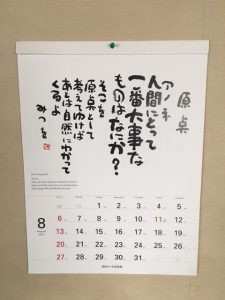 原点
アノネ
人間にとって
一番大事な
ものはなにか？
そこを
原点として
考えてゆけば
あとは自然にわかって
くるよ
みつを
8
1 2 3 4 5
6 7 8 9 10 11 12
13 14 15 16 17 18 19
20 21 22 23 24 25 26
27 28 29 30 31